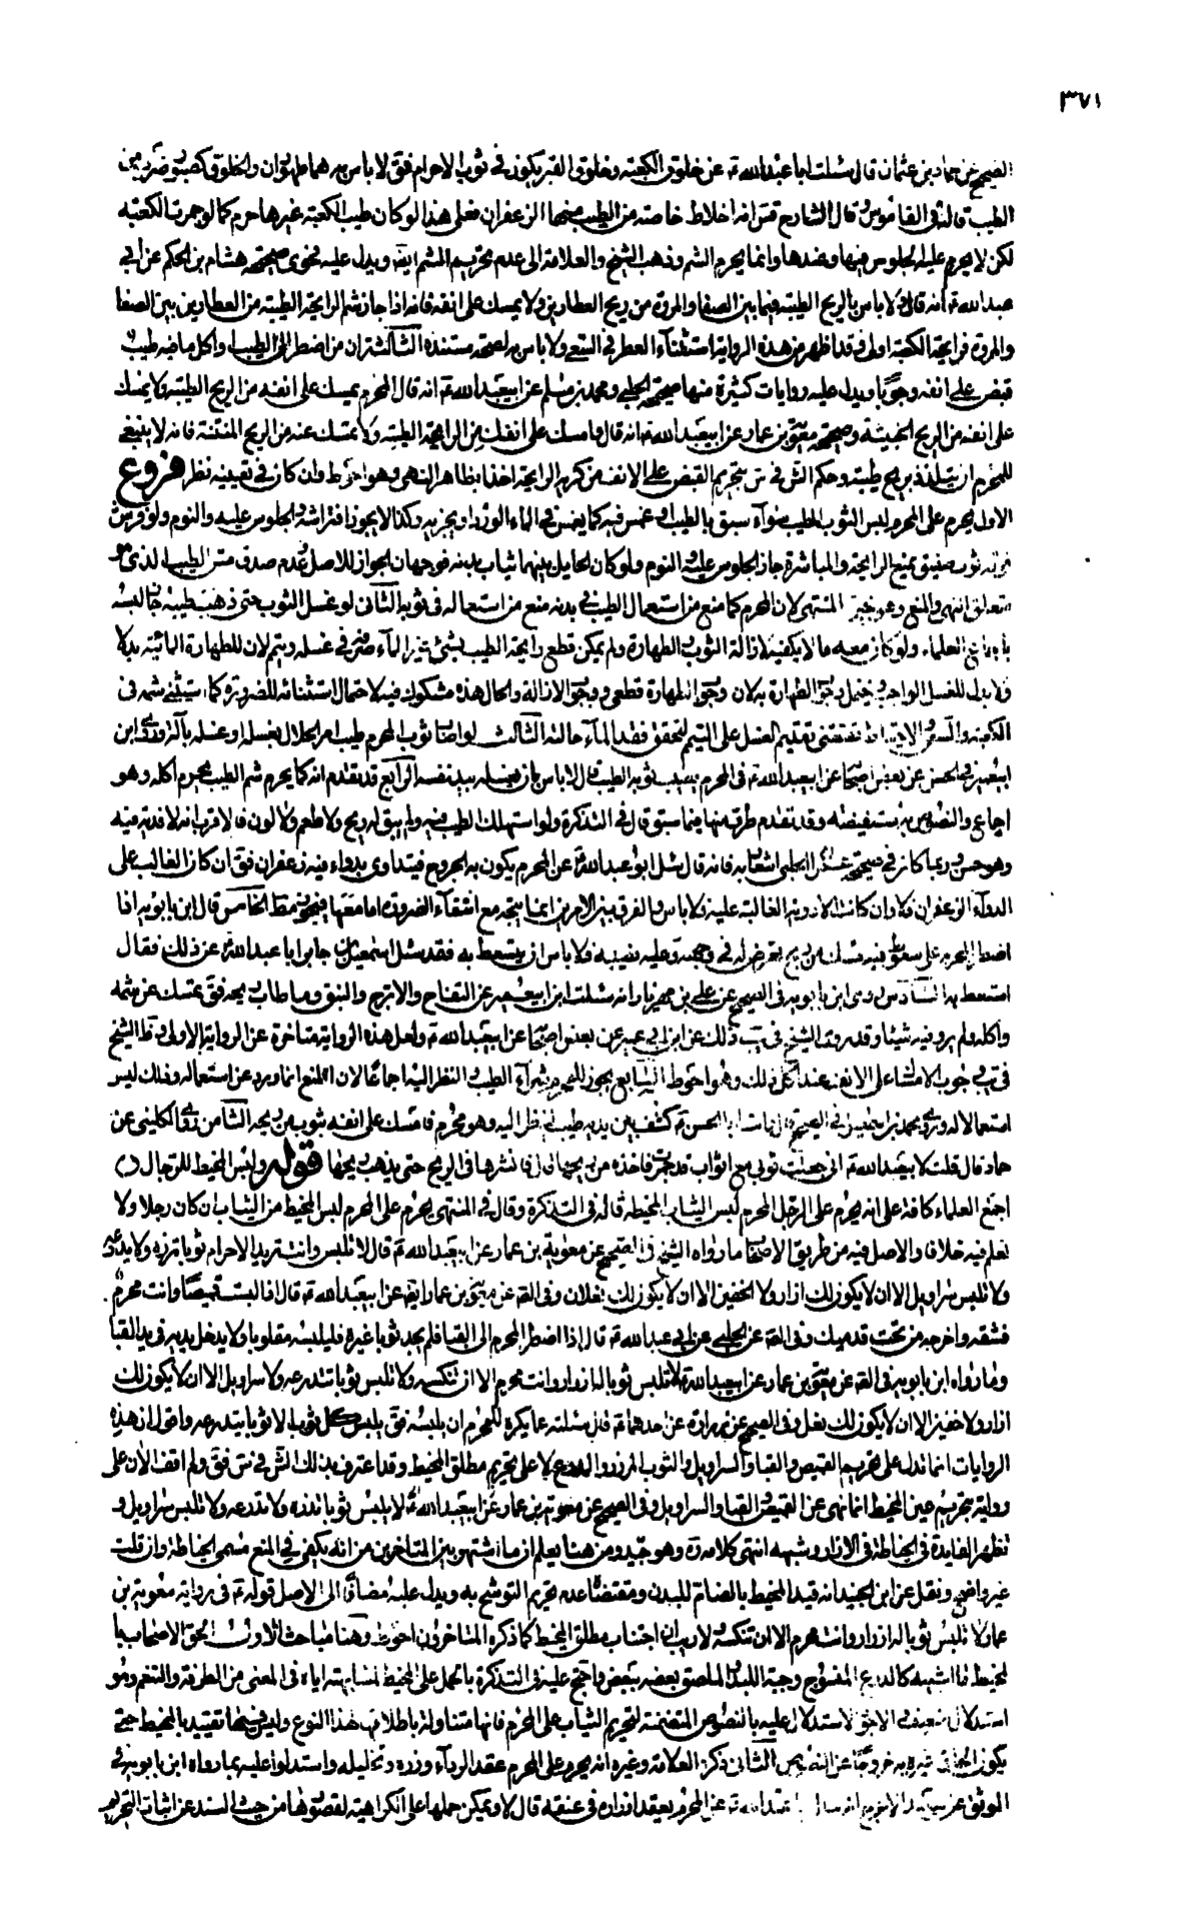 ٣٧١
الصحيح عن حماد بن عثمان قال سئلت ابا عبد الله ع عن خلوق الكعبة وخلوق القبر يكون في ثوب الاحرام فق لا باس به هما طهوران والخلوق كصبور ضرب من
الطيب قاله في القاموس قال الشارح قس انه اخلاط خاصة من الطيب منها الزعفران فعلى هذا لو كان طيب الكعبة غيرها حرم كما لو جمرت الكعبة
لكن لا يحرم عليه الجلوس فيها وعندها وانما يحرم الشم وذهب الشيخ والعلامة الى عدم تحريم الشم ايضا ويدل عليه فحوى صحيحة هشام بن الحكم عن ابي
عبد الله ع انه قال لا باس بالريح الطيبة فيما بين الصفا والمروة من ريح العطارين ولا يمسك على انفه فانه اذا جاز شم الرايحة الطيبة من العطارين بين الصفا
والمروة فرايحة الكعبة اولى وقد ظهر من هذه الرواية استثناء العطر في السعي ولا باس به لصحة مستنده الثالث ان من اضطر الى الطيب او اكل ما فيه طيب
قبض على انفه وجوبا ويدل عليه روايات كثيرة منها صحيحة الحلبي ومحمد بن مسلم عن ابيعبد الله ع انه قال المحرم يمسك على انفه من الريح الطيبة ولا يمسك
على انفه من الريح الخبيثة وصحيحة معوية بن عمار عن ابيعبد الله ع انه قال وامسك على انفك من الرايحة الطيبة ولا تمسك عنه من الريح المنتنة فانه لا ينبغي
للمحرم ان يتلذذ بريح طيبة وحكم الش في س بتحريم القبض على الانف من كريه الرايحة اخذا بظاهر النهي وهو احوط وان كان في تعيينه نظر فروع
الاول يحرم على المحرم لبس الثوب المطيب سواء سبق بالطيب او غمس فيه كما يغمس في الماء الورد او بخر به وكذا لا يجوز افتراشه والجلوس عليه والنوم ولو فرش
فوقه ثوب صفيق يمنع الرايحة والمباشرة جاز الجلوس عليه والنوم ولو كان الحايل بينهما ثياب بدنه فوجهان الجواز للاصل وعدم صدق مس الطيب الذي هو
متعلق النهي والمنع وهو خيرة المنتهى لان المحرم كما منع من استعمال الطيب في بدنه منع من استعماله في ثوبه الثاني لو غسل الثوب حتى ذهب طيبه جاز لبسه
باجماع العلماء ولو كان معه ما لا يكفيه لازالة الثوب والطهارة ولم يمكن قطع رايحة الطيب بشئ غير الماء صرفه في غسله وتيمم لان للطهارة المائية بدلا
ولا بدل للغسل الواجب ويحتمل وجوب الطهارة به لان وجوب الطهارة قطعي ووجوب الازالة والحال هذه مشكوك فيه لاحتمال استثنائه للضرورة كما استثنى شمه في
الكعبة والسعي الاحتياط يقتضي تقديم الغسل على التيمم لتحقق فقد الماء حالته الثالث لو اصاب ثوب المحرم طيب امر الحلال بغسله او غسله بآلة وروى ابن
ابيعمير في الحسن عن بعض اصحابنا عن ابيعبد الله ع في المحرم يصيب ثوبه الطيب قال لا باس بان يغسله بيد نفسه الرابع قد تقدم انه كما يحرم شم الطيب يحرم اكله وهو
اجماع والنصوص به مستفيضة وقد تقدم طرف منها فيما سبق قال في التذكرة ولو استهلك الطيب فيه ولم يبق له ريح ولا طعم ولا لون فالاقرب انه لا فدية فيه
وهو حسن وربما كان في صحيحة عمران الحلبي اشعار به فانه قال سئل ابو عبد الله ع عن المحرم يكون به الجروح فيتداوى بدواء فيه زعفران فق ان كان الغالب على
الدواء الزعفران فلا وان كانت الادوية الغالبة عليه فلا باس والفرق بين الامرين انما يتجه مع انتفاء الضرورة اما معها فيجوز مط الخامس قال ابن بابويه اذا
اضطر المحرم على سعوط فيه مسك من ريح يعرض له في وجهه وعلة تصيبه فلا باس ان يستعط به فقد سئل اسمعيل بن جابر ابا عبد الله ع عن ذلك فقال
استعط به السادس روى ابن بابويه في الصحيح عن علي بن مهزيار انه سئلت ابن ابيعمير عن التفاح والاترج والنبق وما طاب ريحه فق تمسك عن شمه
واكله ولم يرو فيه شيئا وقد روى الشيخ في يب ذلك عن ابن ابي عمير عن بعض اصحابنا عن ابيعبد الله ع ولعل هذه الرواية متاخرة عن الرواية الاولى وقط الشيخ
في يب وجوب الامساك على الانف عند اكل ذلك وهو احوط السابع يجوز للمحرم شراء الطيب والنظر اليه اجماعا لان المنع انما ورد عن استعماله وذلك ليس
استعمالا له وروى محمد بن اسمعيل في الصحيح قال رايت ابا الحسن ع كشف بين يديه طيب لينظر اليه وهو محرم فامسك على انفه بثوبه من ريحه الثامن روى الكليني عن
حماد قال قلت لابيعبد الله ع اني جعلت ثوبي مع اثواب قد جمرت فاخذ من ريحها قال فانشرها في الريح حتى يذهب ريحها قوله ولبس المخيط للرجال
اجمع العلماء كافة على انه يحرم على الرجل المحرم لبس الثياب المخيطة قاله في التذكرة وقال في المنتهى يحرم على المحرم لبس المخيط من الثياب ان كان رجلا ولا
نعلم فيه خلافا والاصل فيه من طريق الاصحاب ما رواه الشيخ في الصحيح عن معوية بن عمار عن ابيعبد الله ع قال لا تلبس وانت تريد الاحرام ثوبا تزره ولا تدرعه
ولا تلبس سراويل الا ان لا يكون لك ازار ولا الخفين الا ان لا يكون لك نعلان وفي الصه عن معوية بن عمار ايضا عن ابيعبد الله ع قال اذا لبست قميصا وانت محرم
فشقه واخرجه من تحت قدميك وفي الصه عن الحلبي عن ابي عبد الله ع قال اذا اضطر المحرم الى القبا فلم يجد ثوبا غيره فليلبسه مقلوبا ولا يدخل يديه في يد القبا
وما رواه ابن بابويه في الصه عن معوية بن عمار عن ابيعبد الله ع لا تلبس ثوبا له ازرار وانت محرم الا ان تنكسه ولا تلبس ثوبا تتدرعه ولا سراويل الا ان لا يكون لك
ازار ولا خفين الا ان لا يكون لك نعل وفي الصحيح عن زرارة عن احدهما ع قال سئلته عما يكره للمحرم ان يلبسه فق يلبس كل ثوب الا ثوبا يتدرعه واقول ان هذه
الروايات انما تدل على تحريم القميص والقبا والسراويل والثوب المزرر والمدرع لا على تحريم مطلق المخيط وقد اعترف بذلك الش في س فق ولم اقف الان على
رواية بتحريم عين المخيط انما نهى عن القميص والقبا والسراويل وفي الصحيح عن معوية بن عمار عن ابيعبد الله ع لا تلبس ثوبا تزره ولا تدرعه ولا تلبس سراويل و
تظهر الفايدة في الخياطة في الازار وشبهه انتهى كلامه ره وهو جيد ومن هنا يعلم ان ما اشتهر بين المتاخرين من انه يكفي في المنع مسمى الخياطة وان قلت
غير واضح ونقل عن ابن الجنيد انه قيد المخيط بالضام للبدن ومقتضاه عدم تحريم التوشح به ويدل عليه مضافا الى الاصل قوله ع في رواية معوية بن
عمار ولا تلبس ثوبا له ازرار وانت محرم الا ان تنكسه ولا ريب ان اجتناب مطلق المخيط كما ذكره المتاخرون احوط وهنا مباحث الاول الحق الاصحاب با
لمخيط ما اشبهه كالدرع المنسوج وجبة اللبد والملصق بعضه ببعض واحتج عليه في التذكرة بالحمل على المخيط لمشابهته اياه في المعنى من الطرفة والتنعم وهو
استدلال ضعيف والاجود الاستدلال عليه بالنصوص المتضمنة لتحريم الثياب على المحرم فانها متناولة باطلاقها لهذا النوع وليس فيها تقييد بالمخيط حتى
يكون الحاق غيره به خروجا عن النصوص الثاني ذكر العلامة وغيره انه يحرم على المحرم عقد الرداء وزره وتخليله واستدلوا عليه بما رواه ابن بابويه في
الموثق عن سعيد الاعرج انه سال ابا عبد الله ع عن المحرم يعقد ازاره في عنقه قال لا ويمكن حملها على الكراهية لقصورها من حيث السند عن اثبات التحريم